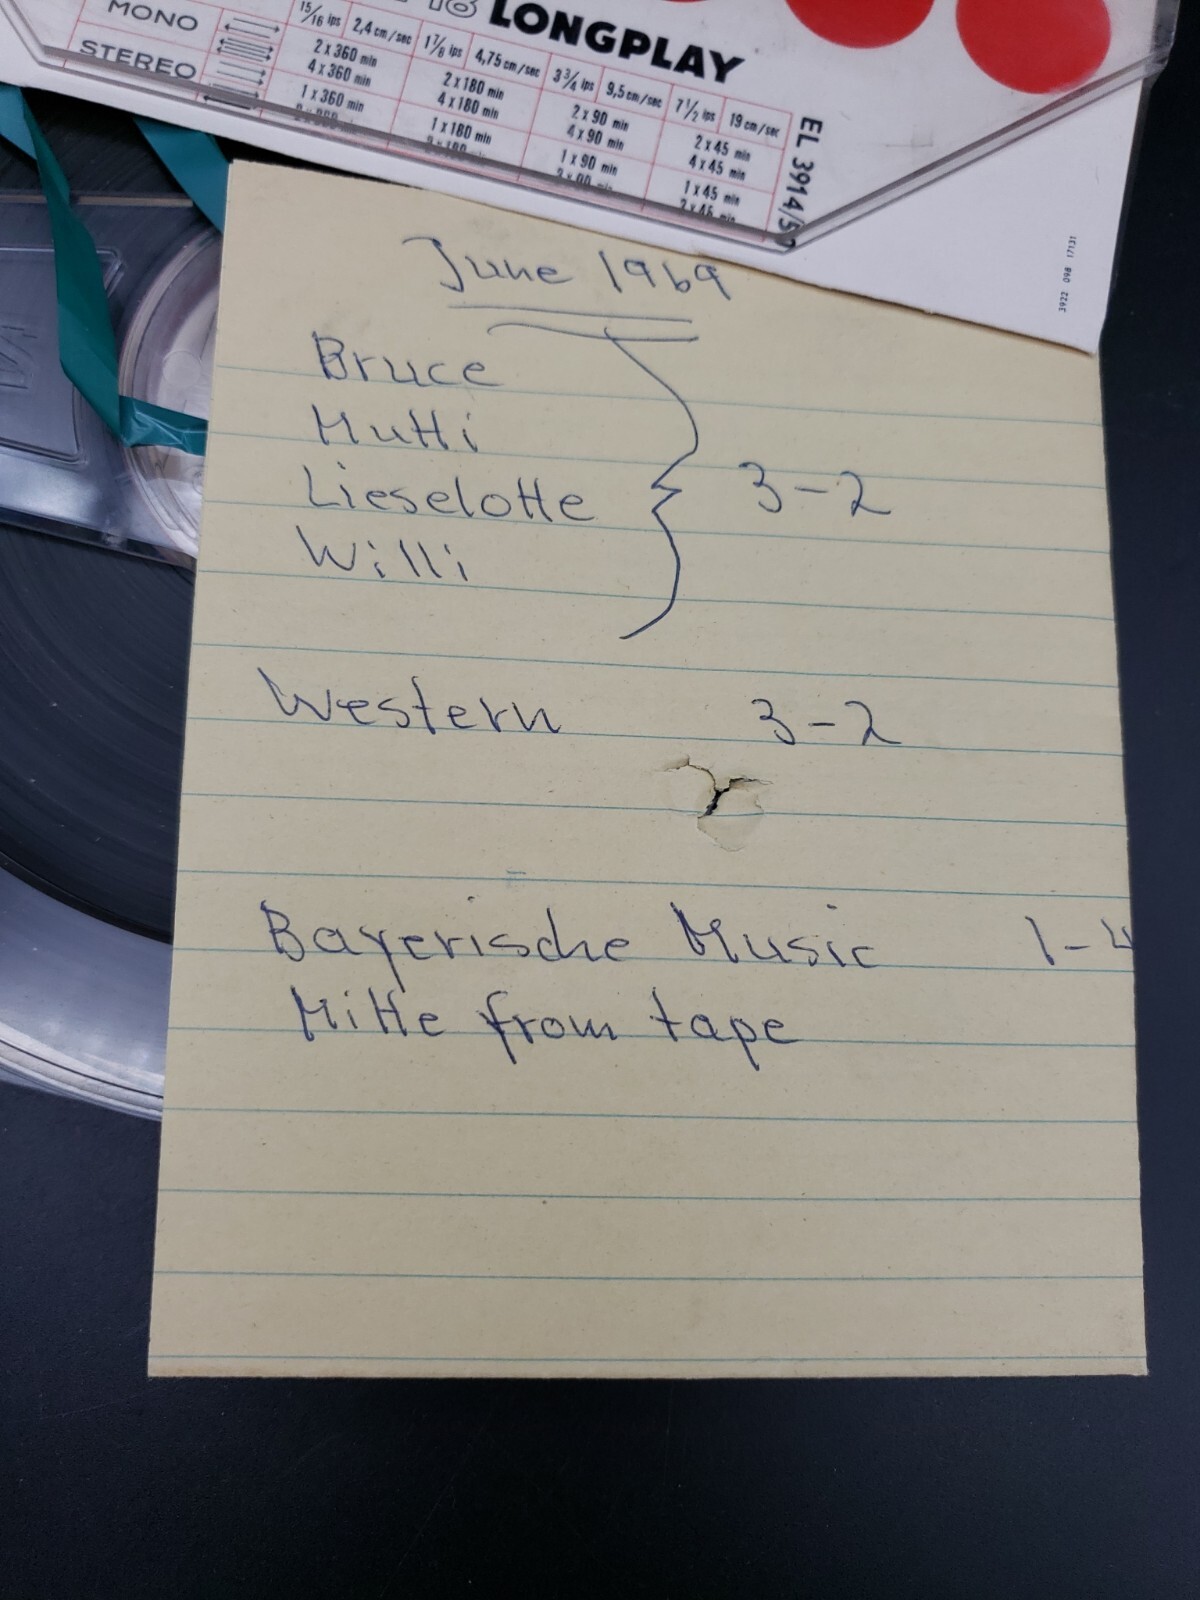 18 LONGPLAY
MONO
STEREO
15/16 ips 2,4 cm/sec 1 7/8 ips 4,75 cm/sec 3 3/4 ips 9,5 cm/sec 7 1/2 ips 19 cm/sec
2 x 360 min 2 x 180 min 2 x 90 min 2 x 45 min
4 x 360 min 4 x 180 min 4 x 90 min 4 x 45 min
1 x 360 min 1 x 180 min 1 x 90 min 1 x 45 min
2 x 360 min 2 x 180 min 2 x 90 min 2 x 45 min
EL 3914/5
3922 098 17131
June 1969
Bruce
Mutti
Lieselotte 3-2
Willi
Western 3-2
Bayerische Music 1-4
Mitte from tape